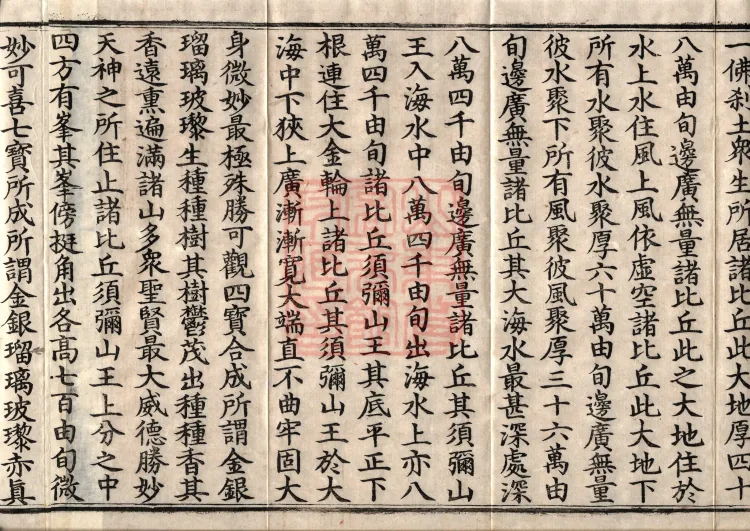 一佛刹土衆生所居諸比丘此大地厚四十
八萬由旬邊廣無量諸比丘此之大地住於
水上水住風上風依虛空諸比丘此大地下
所有水聚彼水聚厚六十萬由旬邊廣無量
彼水聚下所有風聚彼風聚厚三十六萬由
旬邊廣無量諸比丘其大海水最甚深處深
八萬四千由旬邊廣無量諸比丘其須彌山
王入海水中八萬四千由旬出海水上亦八
萬四千由旬諸比丘須彌山王其底平正下
根連住大金輪上諸比丘其須彌山王於大
海中下狹上廣漸漸寬大端直不曲牢固大
身微妙最極殊勝可觀四寶合成所謂金銀
瑠璃玻瓈生種種樹其樹鬱茂出種種香其
香遠熏遍滿諸山多衆聖賢最大威德勝妙
天神之所住止諸比丘須彌山王上分之中
四方有峯其峯傍挺角出各高七百由旬微
妙可喜七寶所成所謂金銀瑠璃玻瓈赤真